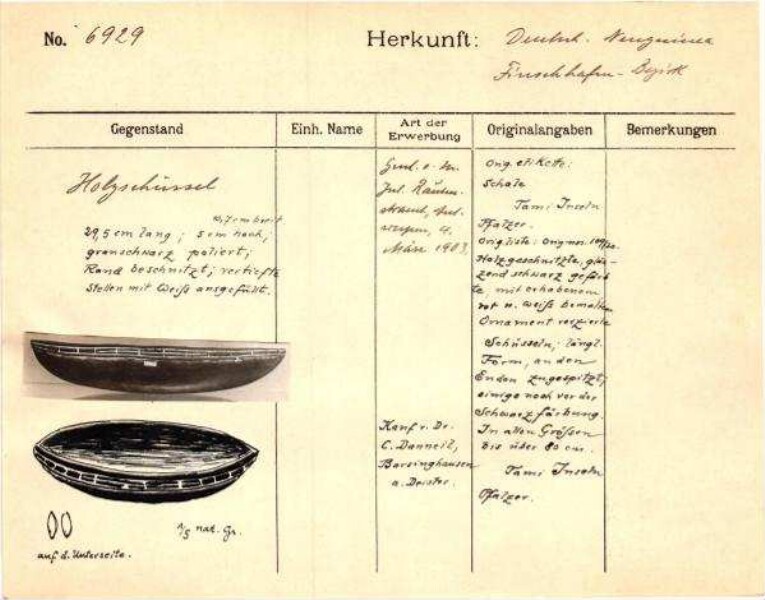 No. 6929
Herkunft: Deutsch. Neuguinea
Finschhafen - Bezirk
Gegenstand
Einh. Name
Art der Erwerbung
Originalangaben
Bemerkungen
Holzschüssel
cm breit
29,5 cm lang; 5 cm hoch;
grauschwarz poliert;
Rand beschnitzt; vertiefte
Stellen mit Weiß ausgefüllt.
auf d. Unterseite.
1/5 nat. Gr.
März 1903.
Kauf v. Dr.
C. Danneil,
Barsinghausen
a. Deister.
Orig. etikette:
Schale
Tami Inseln
Pfalzer.
Orig liste: Orig nr.
Holzgeschnitzte, glän-
zend schwarz gefärb
te mit erhabenem
rot u. weiß bemalten
Ornament verzierte
Schüsseln, längl.
Form, an den
Enden zugespitzt,
einige noch vor der
Schwarzfärbung.
In allen Größen
bis über 80 cm.
Tami Inseln
Pfalzer.